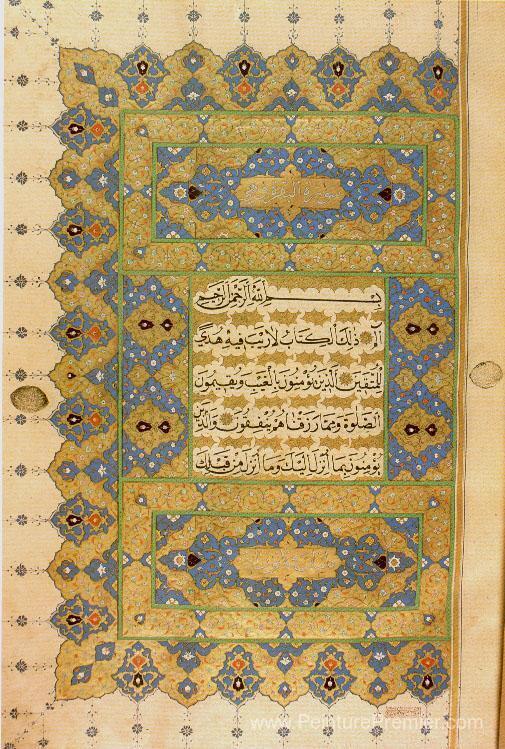 سورة البقرة
بسم الله الرحمن الرحيم
الم ذلك الكتاب لا ريب فيه هدى
للمتقين الذين يؤمنون بالغيب ويقيمون
الصلوة ومما رزقناهم ينفقون والذين
يؤمنون بما أنزل اليك وما أنزل من قبلك
www.PeinturePremier.com